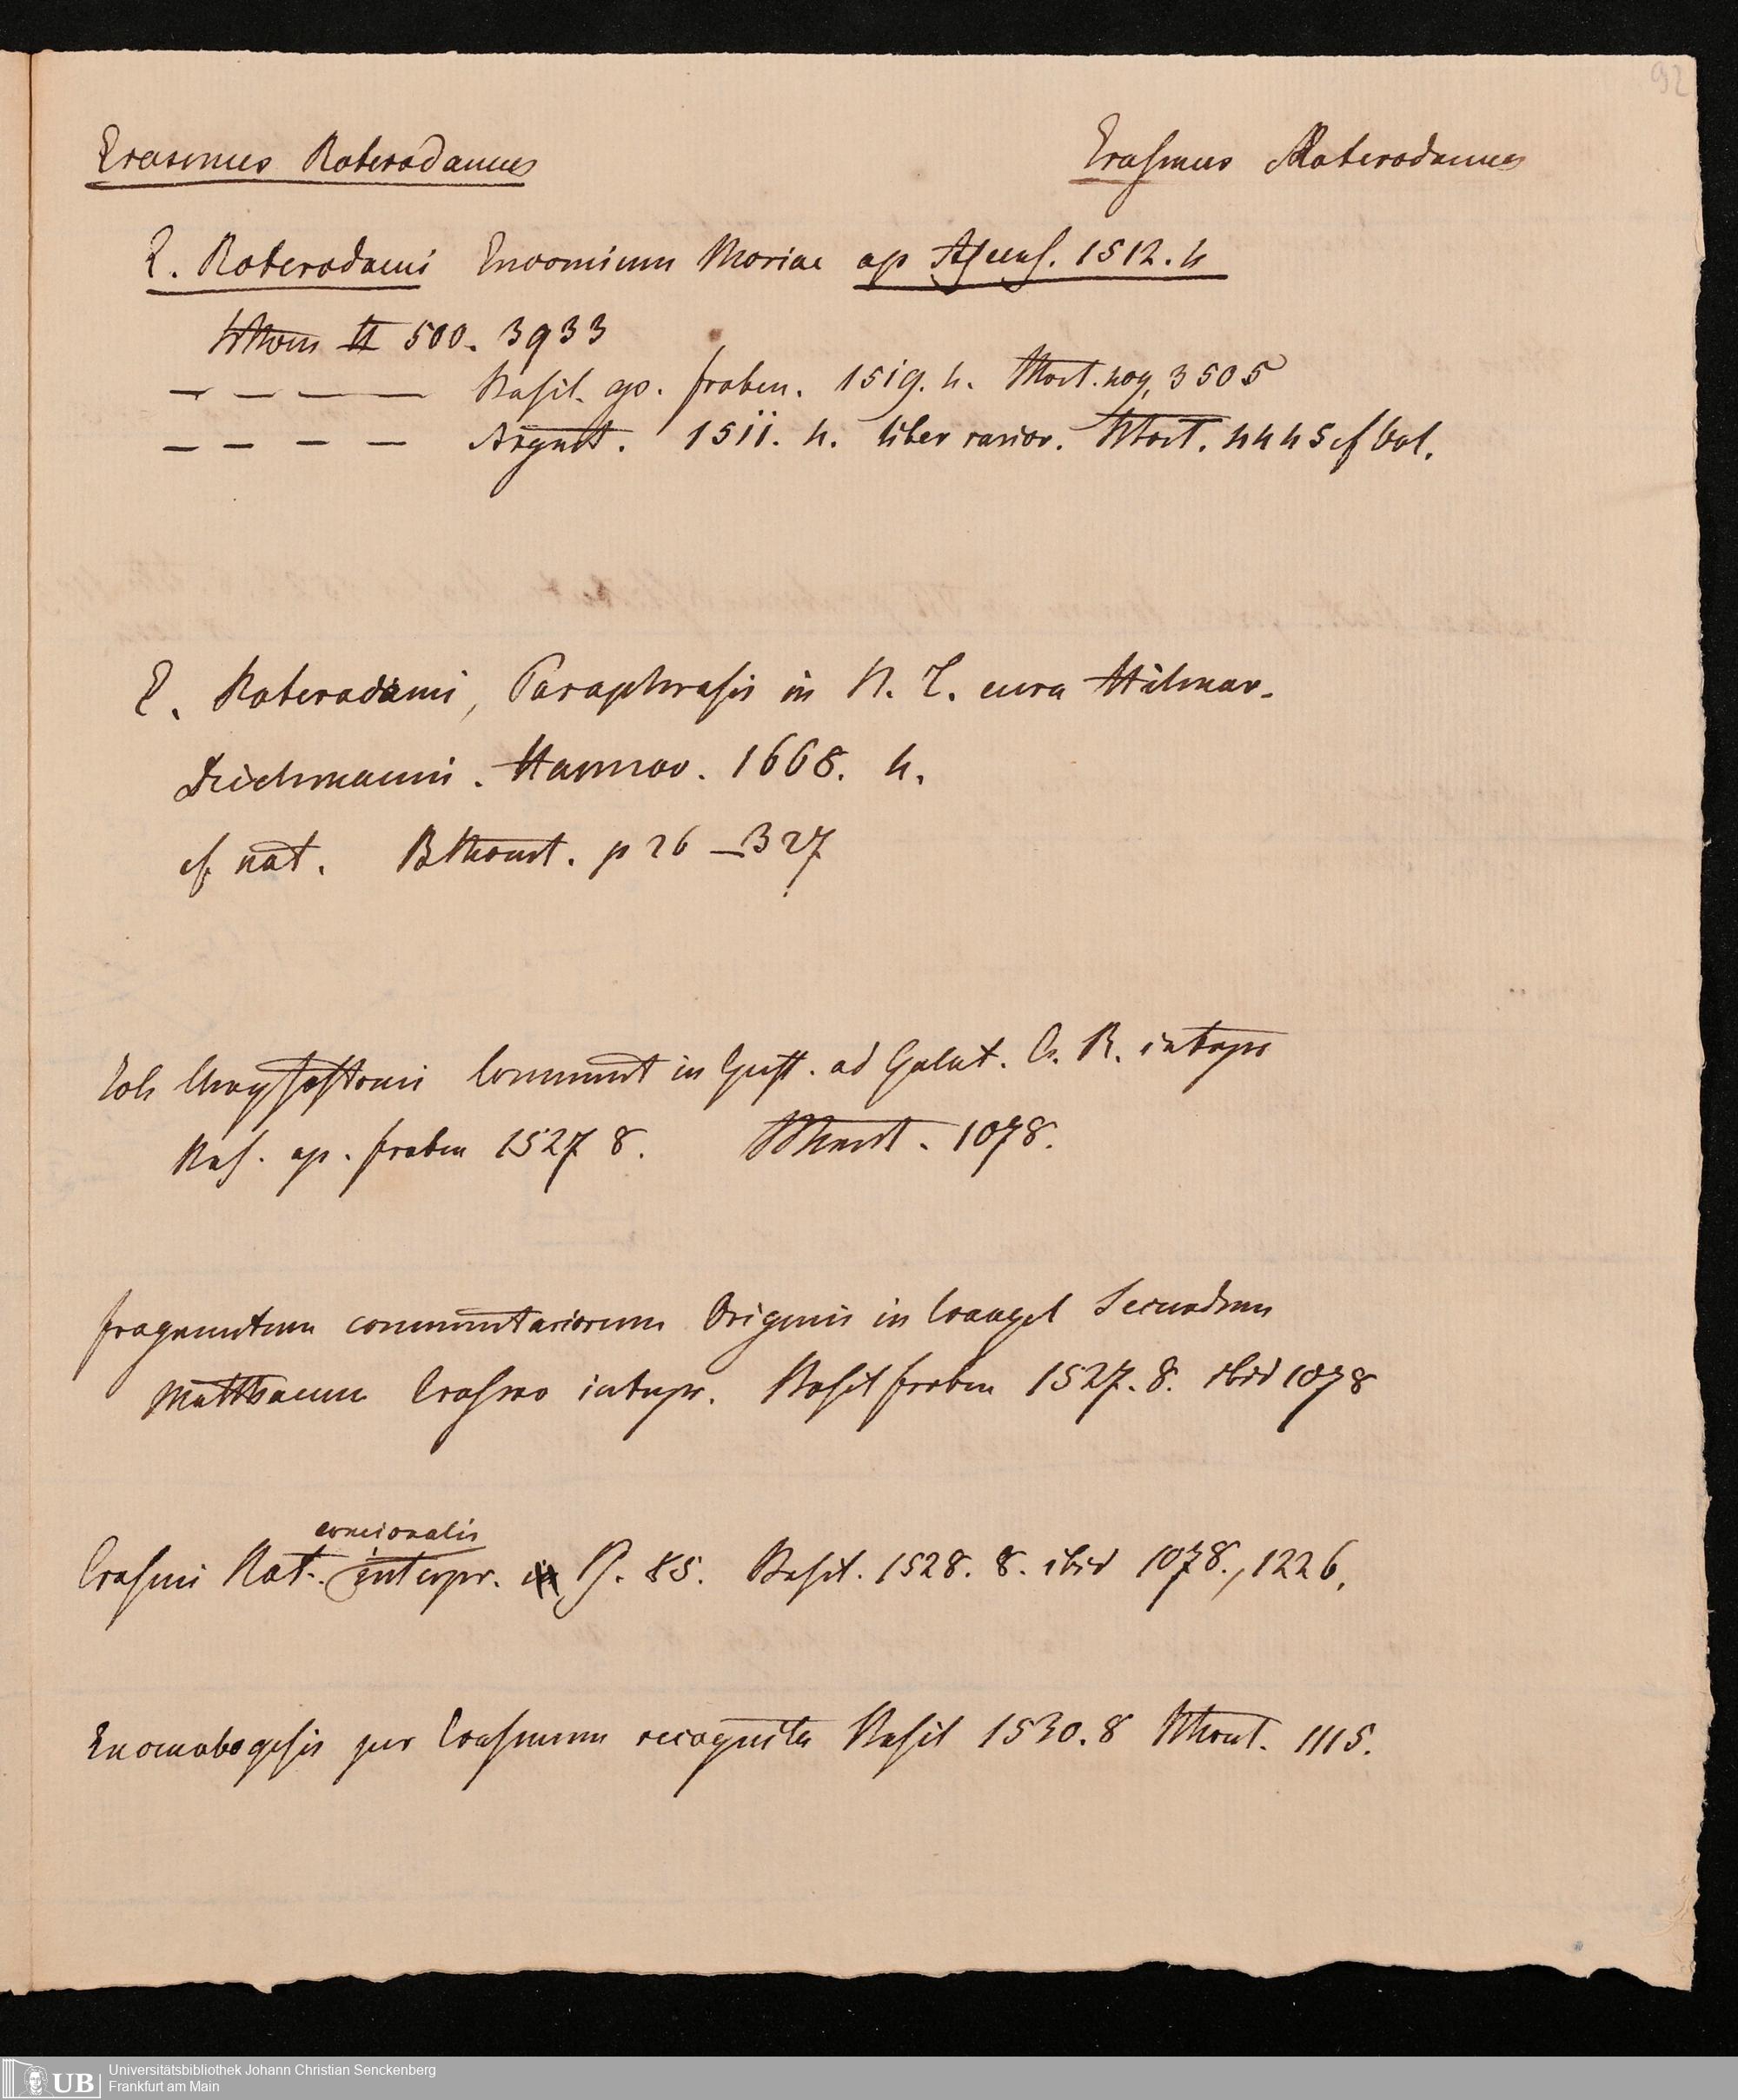 92
Erasmus Roterodamus Erasmus Roterodamus
E. Roterodami Encomium Moriae ap Ascens. 1512. 4
II 500. 3933
— — — — Basil. ap. Froben. 1519. 4. 3505
— — — — Argent. 1511. 4. liber rarior. 4445 cf
E. Roterodami, Paraphrasis in N. T. cura Hilmar.
Deichmanni. Hannov. 1668. 4.
cf nat. p 26 – 327
Joh Chrysostomi Comment in Epist. ad Galat. E. R. interpr
Bas. ap. Froben 1527 8. 1078.
fragmentum commentariorum Origenis in Evangel Secundum
Matthaeum Erasmo interpr. Basil Froben 1527. 8. ibid 1078
concionalis
Erasmi Rot. interpr. in P. 85. Basil. 1528. 8. ibid 1078., 1226.
per Erasmum recognita Basil 1530. 8 1115.
UB Universitätsbibliothek Johann Christian Senckenberg
Frankfurt am Main